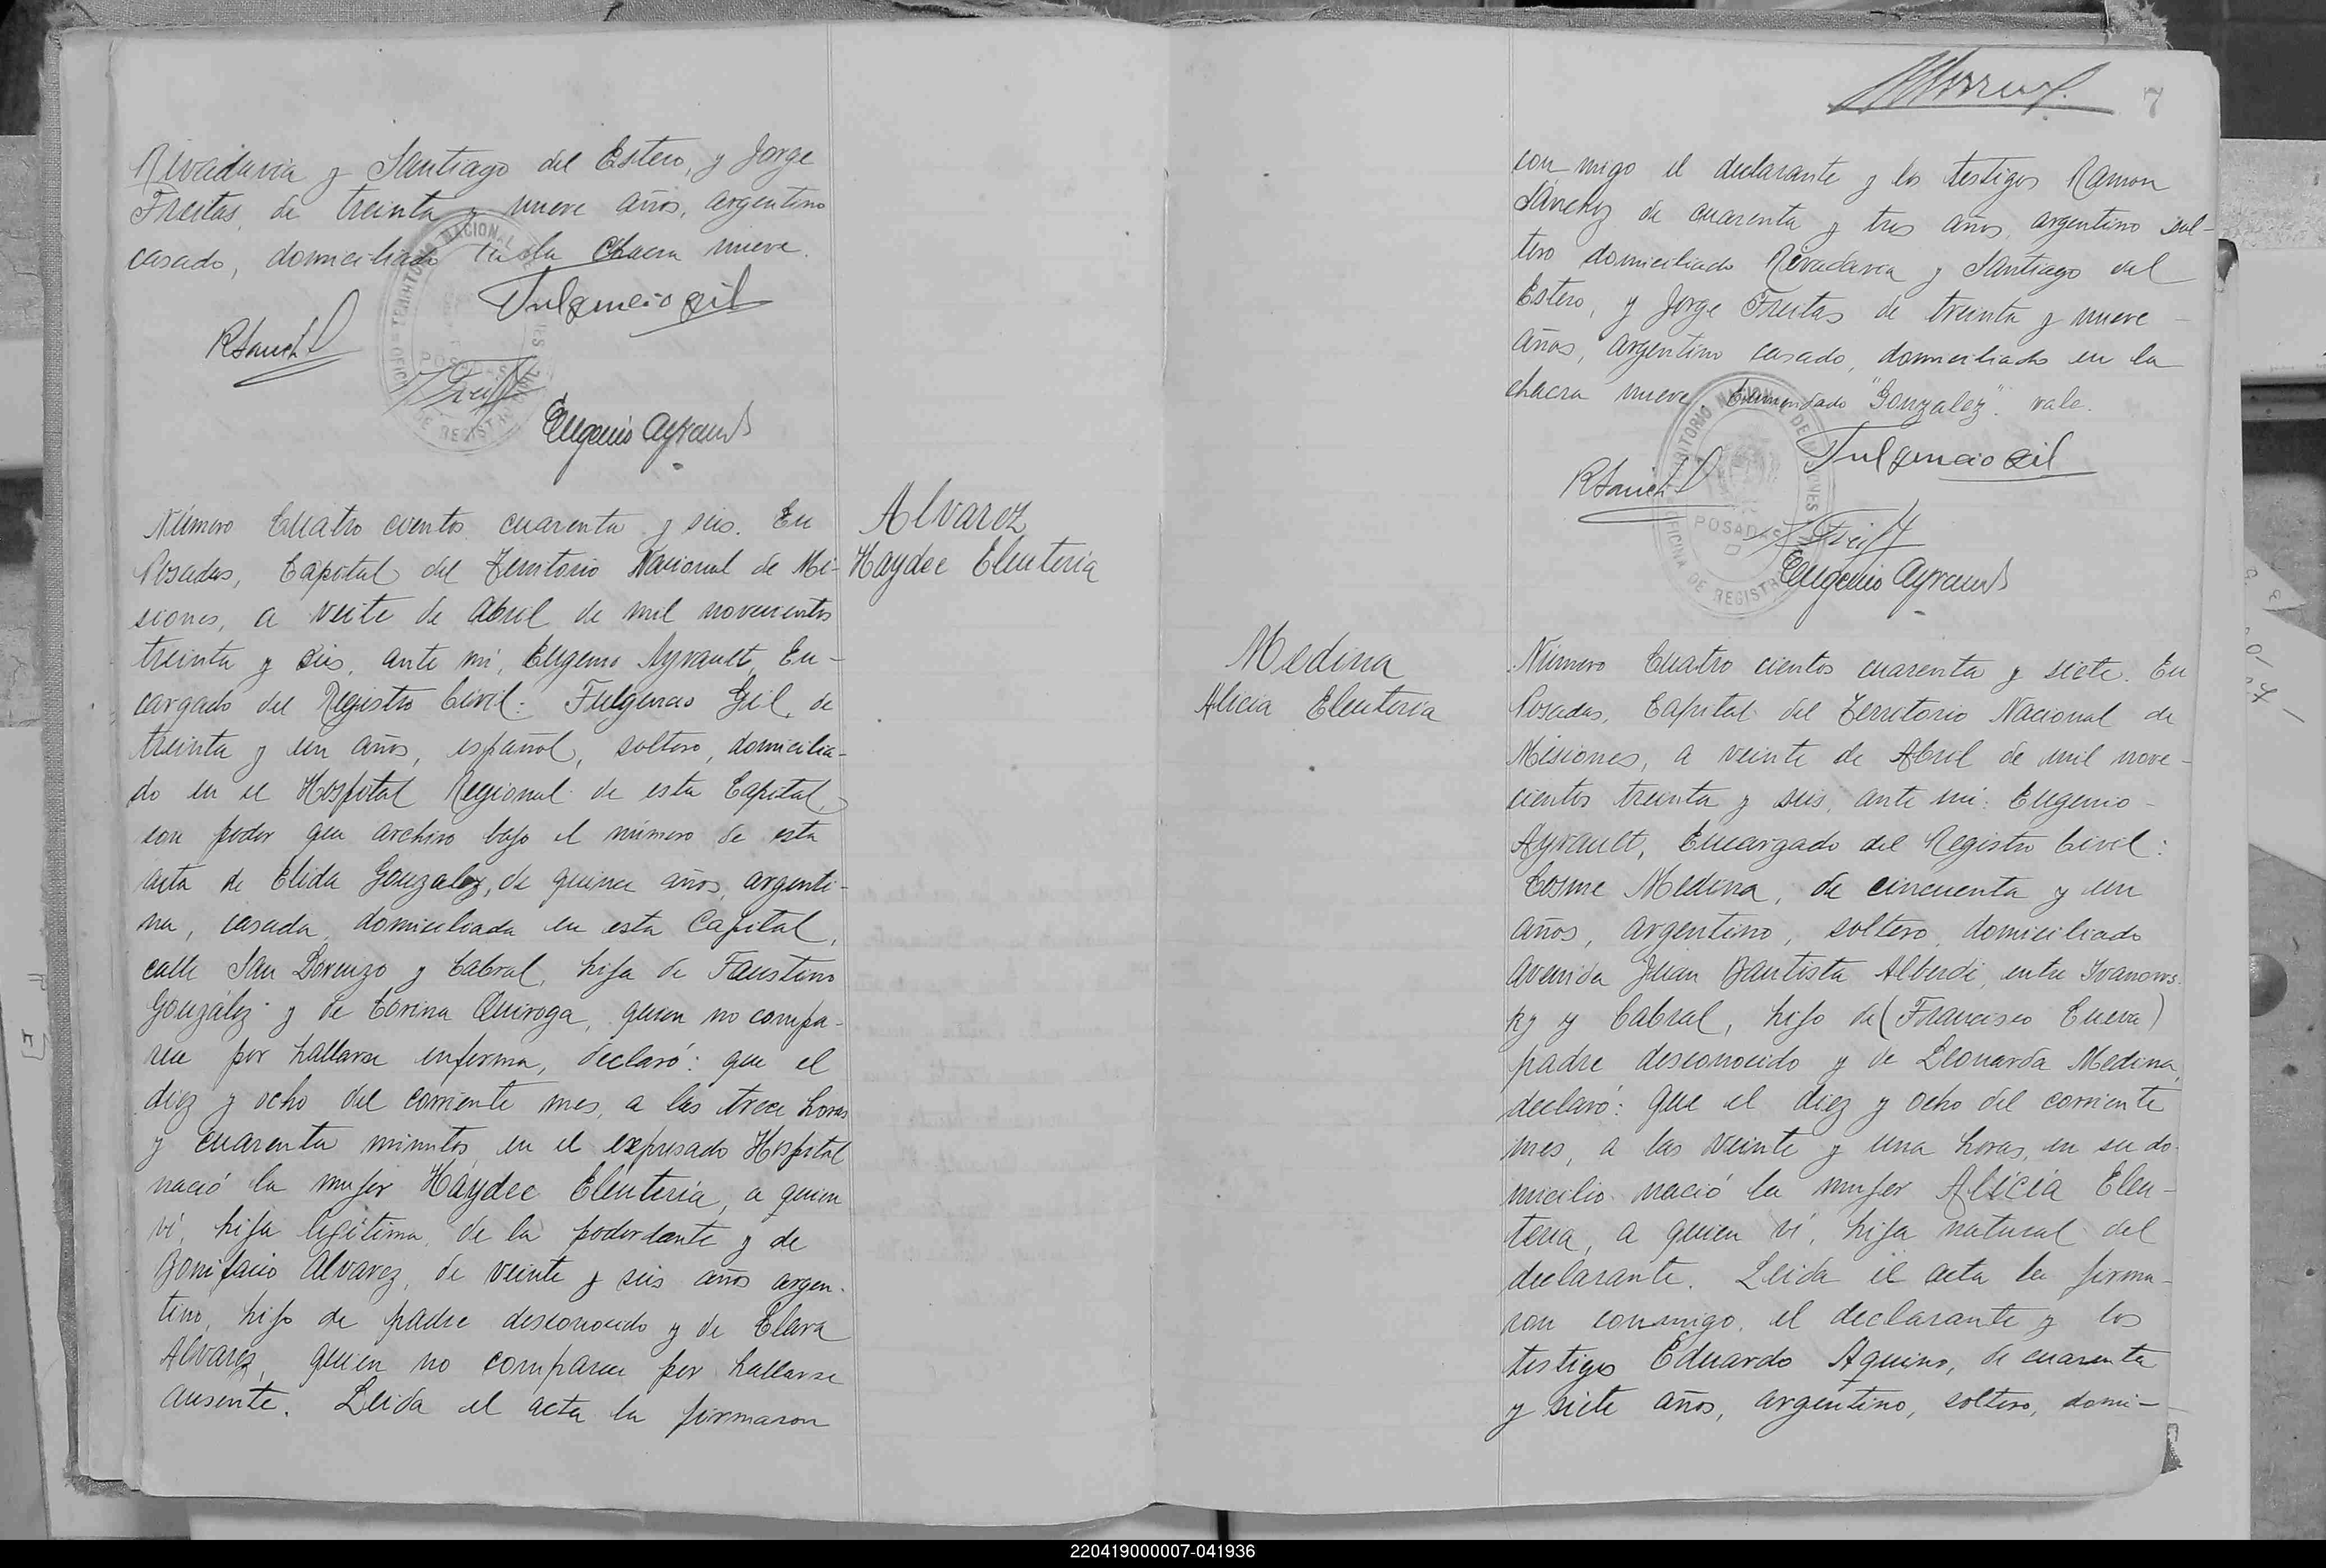 Rivadavia y Santiago del Estero, y Jorge
Freitas, de treinta y nueve años, argentino
casado, domiciliado en la Chacra nueve.
Fulgencio Gil
RSanch
Eugenio Ayrault
TERRITORIO NACIONAL
POSADAS
Alvarez
Haydee Eleuteria
Número Cuatro cientos cuarenta y seis. En
Posadas, Capital del Territorio Nacional de Mi-
siones, a veite de Abril de mil novecientos
treinta y seis, ante mí, Eugenio Ayrault, En-
cargado del Registro Civil: Fulgencio Gil, de
treinta y un años, español, soltero, domicilia-
do en el Hospital Regional de esta Capital,
con poder que archivo bajo el número de esta
acta de Elida Gonzalez, de quince años, argenti-
na, casada, domiciliada en esta Capital,
calle San Lorenzo y Cabral, hija de Faustino
González y de Corina Quiroga, quien no compa-
rece por hallarse enferma, declaró: que el
diez y ocho del corriente mes, a las trece horas
y cuarenta minutos, en el expresado Hospital
nació la mujer Haydee Eleuteria, a quien
ví, hija legítima, de la poderdante y de
Bonifacio Alvarez, de veinte y seis años argen-
tino, hijo de padre desconocido y de Clara
Alvarez, quien no comparece por hallarse
ausente. Leida el acta la firmaron
7
con migo el declarante y los testigos Ramon
Sánchez de cuarenta y tres años, argentino sol-
tero domiciliado Rivadavia y Santiago del
Estero, y Jorge Freitas de treinta y nueve
años, argentino casado, domiciliado en la
chacra nueve. Enmendado "Gonzalez". vale.
Fulgencio Gil
RSanch
Eugenio Ayrault
TERRITORIO NACIONAL DE MISIONES
POSADAS
OFICINA DE REGISTRO
Medina
Alicia Eleuteria
Número Cuatro cientos cuarenta y siete. En
Posadas, Capital del Territorio Nacional de
Misiones, a veinte de Abril de mil nove-
cientos treinta y seis, ante mí: Eugenio
Ayrault, Encargado del Registro Civil:
Cosme Medina, de cincuenta y un
años, argentino, soltero, domiciliado
avenida Juan Bautista Alberdi, entre Ivanows-
ky y Cabral, hijo de (Francisco Cueva)
padre desconocido y de Leonarda Medina,
declaró: que el diez y ocho del corriente
mes, a las veinte y una horas, en su do-
micilio nació la mujer Alicia Eleu-
teria, a quien ví, hija natural del
declarante. Leida el acta la firma-
ron conmigo, el declarante y los
testigos Eduardo Aquino, de cuarenta
y siete años, argentino, soltero, domi-
220419000007-041936